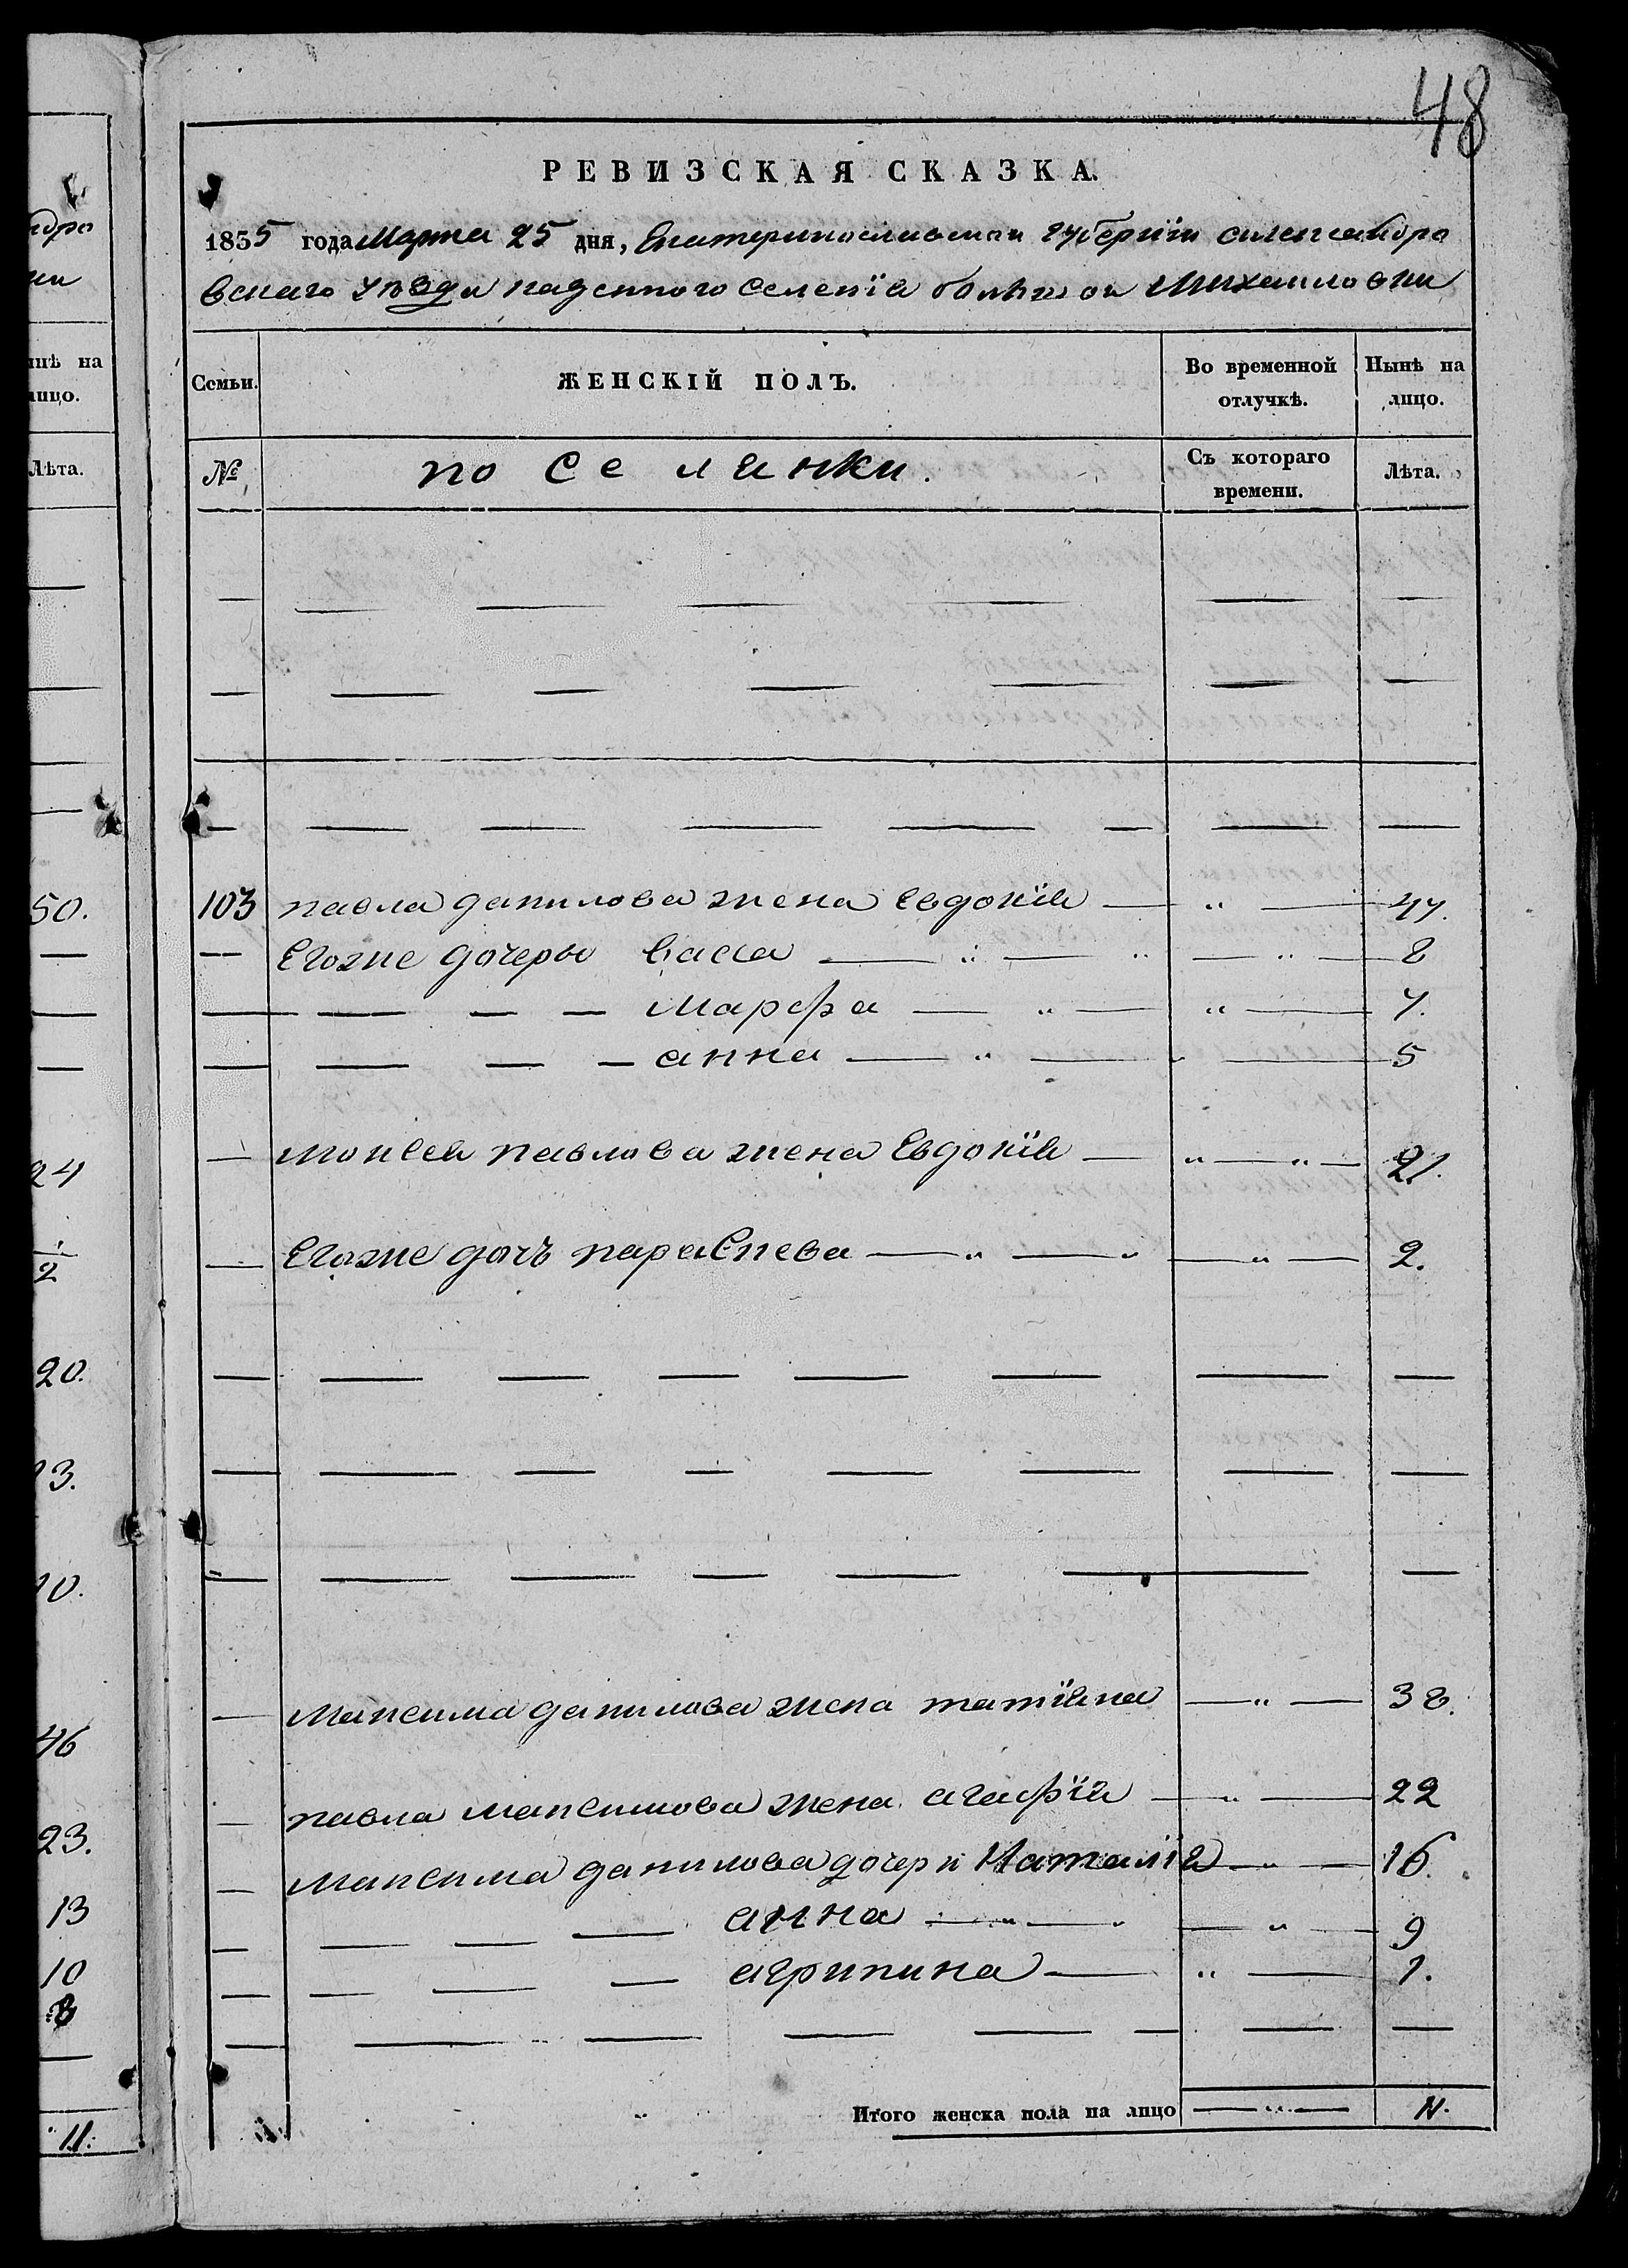 48
РЕВИЗСКАЯ СКАЗКА.
1855 года Марта 25 дня, Екатеринославской губернїи александро
вскаго уѣзда казенного Селенїя большой Михайловки
Семьи. ЖЕНСКІЙ ПОЛЪ. Во временной отлучкѣ. Нынѣ на лицо.
№ поселянки. Съ котораго времени. Лѣта.
103 павла данилова жена Евдокїя — " — 47.
— Егоже дочеры васса — " — " — " — 8
— — — — марфа — " — " — 7.
— — — — анна — " — " — 5
— моисея павлова жена Евдокїя — " — " — 21.
— Егоже дочъ параскева — " — " — " — 2.
— максима данилова жена татїяна — " — 38.
— павла максимова жена агафїя — " — 22
— максима данилова дочери Наталїя — " — 16.
— — — — анна — " — " — " — 9
— — — — агрипина — " — 1.
Итого женска пола на лицо — " — 11.
ндро
ки
ынѣ на
лицо.
Лѣта.
50.
24
1/2
20.
13.
10.
46
23.
13
10
8
11.